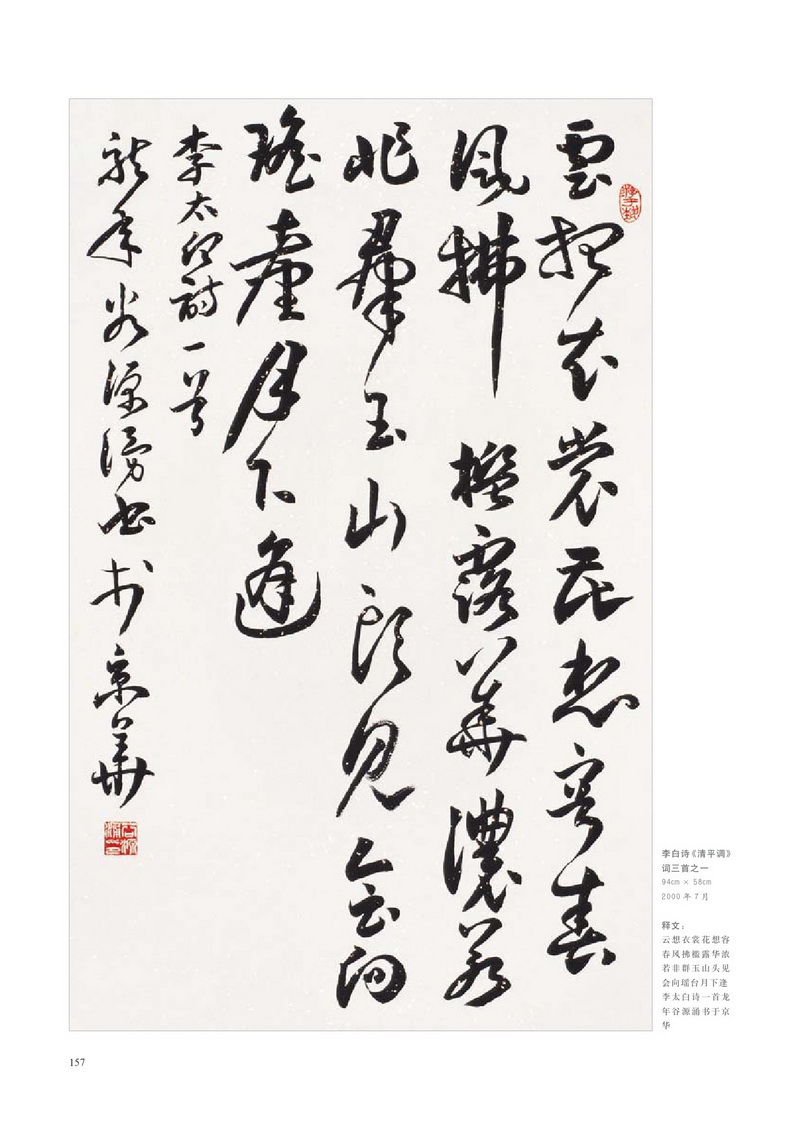 雲想衣裳花想容春
風拂檻露華濃若
非羣玉山頭見会向
瑤臺月下逢
李太白詩一首
龍年谷源涌书于京華
李白诗《清平调》
词三首之一
94cm × 58cm
2000 年 7 月
释文：
云想衣裳花想容
春风拂槛露华浓
若非群玉山头见
会向瑶台月下逢
李太白诗一首龙
年谷源涌书于京
华
157